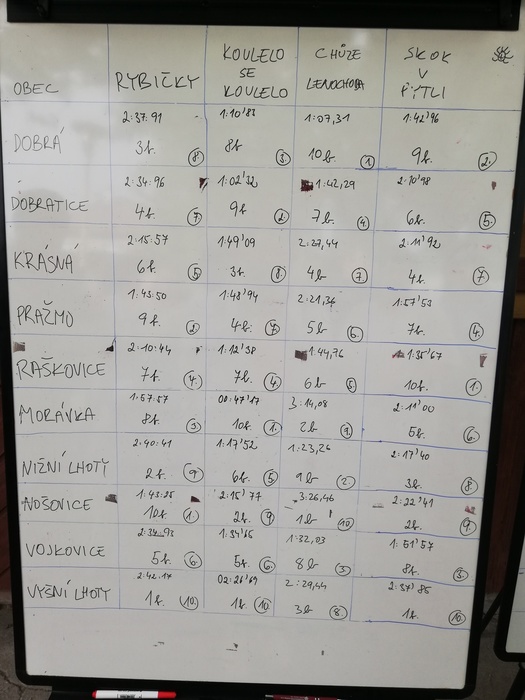 OBEC RYBIČKY KOULELO SE KOULELO CHŮZE LENOCHODA SKOK V PYTLI
DOBRÁ 2:37:91 3b. 8. 1:10'83 8b 3. 1:07,31 10b. 1. 1:42'96 9b. 2.
DOBRATICE 2:34:96 4b. 7. 1:02'32 9b. 2. 1:42,29 7b. 4. 2:10'98 6b. 5.
KRÁSNÁ 2:15:57 6b. 5. 1:49'09 3b. 8. 2:27,44 4b. 7. 2:11'92 4b. 7.
PRAŽMO 1:43:50 9b. 2. 1:48'94 4b. 7. 2:21,34 5b 6. 1:57'53 7b. 4.
RAŠKOVICE 2:10:44 7b. 4. 1:12'38 7b. 4. 1:44,76 6b 5. 1:35'67 10b. 1.
MORÁVKA 1:57:57 8b. 3. 00:47'17 10b. 1. 3:14,08 2b 9. 2:11'00 5b. 6.
NIŽNÍ LHOTY 2:40:41 2b. 9. 1:17'52 6b. 5. 1:23,26 9b 2. 2:17'40 3b. 8.
NOŠOVICE 1:43:25 10b. 1. 2:15'77 2b. 9. 3:26,46 1b 10. 2:22'41 2b. 9.
VOJKOVICE 2:34:93 5b. 6. 1:34'66 5b. 6. 1:32,03 8b 3. 1:51'57 8b. 3.
VYŠNÍ LHOTY 2:42:17 1b. 10. 02:26'69 1b. 10. 2:29,44 3b 8. 2:37'85 1b. 10.